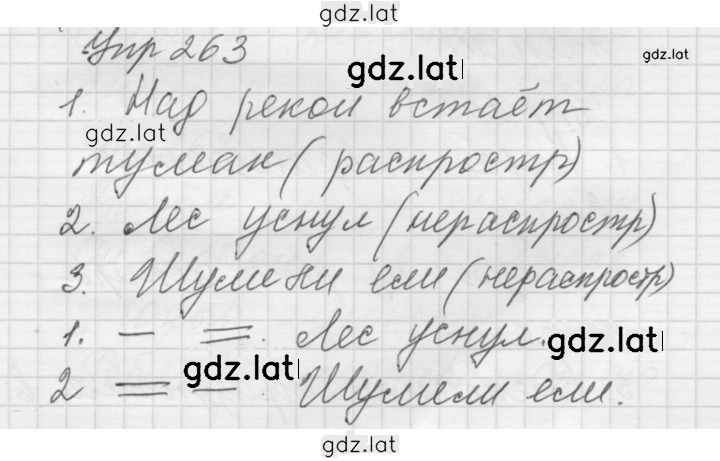 gdz.lat
Упр 263
gdz.lat
gdz.lat
1. Над рекой встаёт
gdz.lat
туман (распростр)
2. Лес уснул (нераспростр)
3. Шумели ели (нераспростр)
1. — =. Лес уснул.
gdz.lat
gdz.lat
2 = — Шумели ели.
gdz.lat